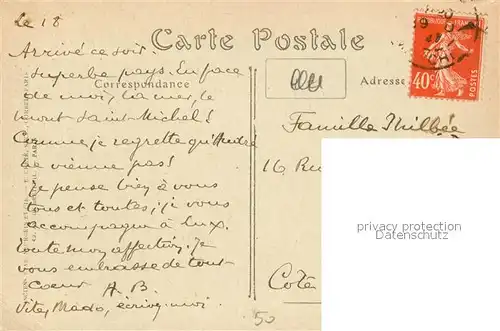 Le 18
Carte Postale
Arrivé ce soir
superbe pays. En face
de moi, la mer, le
mont Saint-Michel!
Correspondance
Adresse
RÉPUBLIQUE FRANÇAISE
40c
POSTES
Comme je regrette qu'André
ne vienne pas!
Je pense bien à vous
tous et toutes; je vous
accompagne à Lux.
toute mon affection. Je
vous embrasse de tout
coeur A. B.
Vite, Mado, écrivez-moi.
Famille
16 Rue
Cote
50
privacy protection
Datenschutz